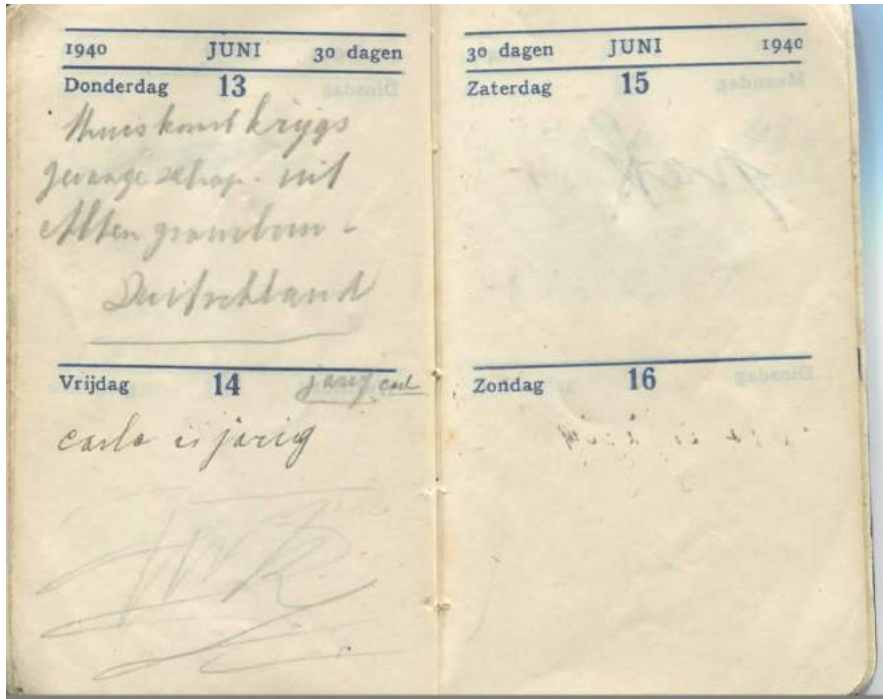 1940 JUNI 30 dagen
Donderdag 13
Thuiskomst krijgs
gevangeschap - uit
Alten grambow -
Duitschland
Vrijdag 14 jarig carl
carla is jarig
30 dagen JUNI 1940
Zaterdag 15
Zondag 16